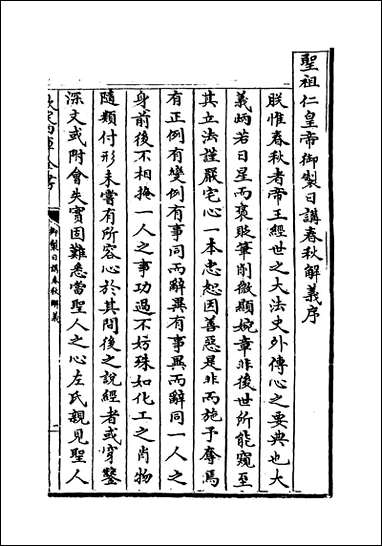 聖祖仁皇帝御製日講春秋解義序
朕惟春秋者帝王經世之大法史外傳心之要典也大
義炳若日星而褒貶筆削微顯婉章非後世所能窺至
其立法謹嚴宅心一本忠恕因善惡是非而施予奪焉
有正例有變例有事同而辭異有事異而辭同一人之
身前後不相掩一人之事功過不妨殊如化工之肖物
隨類付形未嘗有所容心於其間後之說經者或穿鑿
深文或附會失實固難悉當聖人之心左氏親見聖人
欽定四庫全書
御製日講春秋解義
一